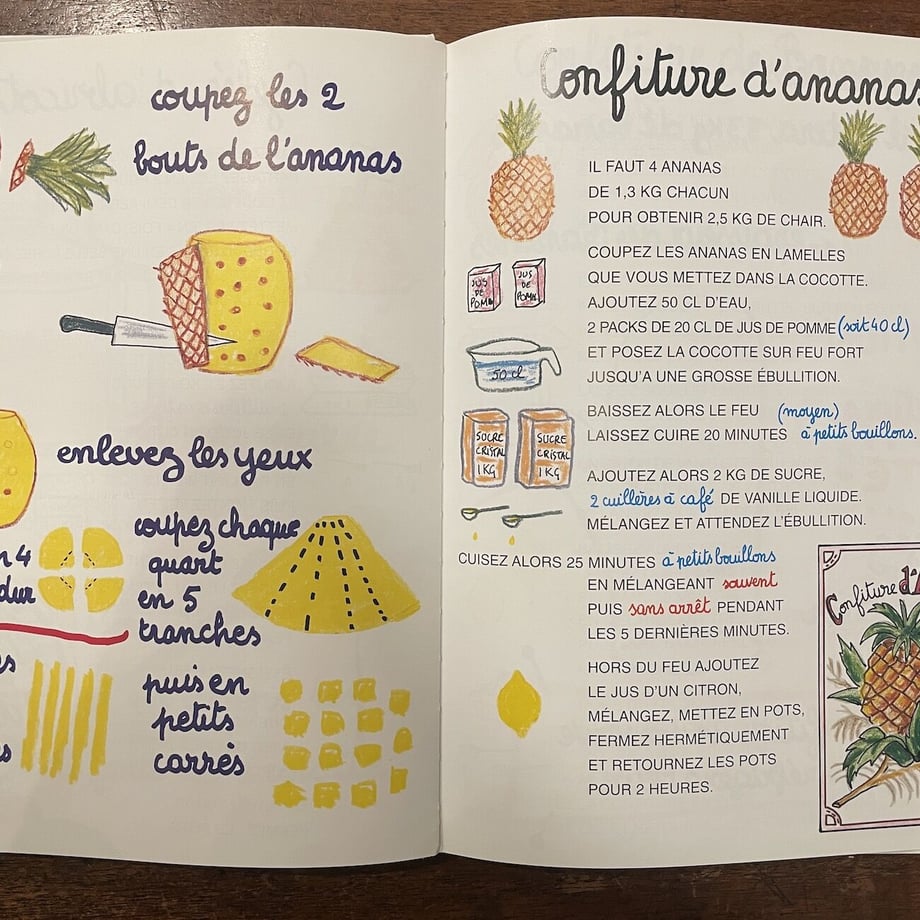 coupez les 2
bouts de l'ananas
enlevez les yeux
en 4
dur
coupez chaque
quart
en 5
tranches
puis en
petits
carrés
Confiture d'ananas
IL FAUT 4 ANANAS
DE 1,3 KG CHACUN
POUR OBTENIR 2,5 KG DE CHAIR.
JUS
DE
POMM
JUS
DE
POMM
COUPEZ LES ANANAS EN LAMELLES
QUE VOUS METTEZ DANS LA COCOTTE.
AJOUTEZ 50 CL D'EAU,
2 PACKS DE 20 CL DE JUS DE POMME (soit 40 cl)
ET POSEZ LA COCOTTE SUR FEU FORT
JUSQU'A UNE GROSSE ÉBULLITION.
50 cl
BAISSEZ ALORS LE FEU (moyen)
LAISSEZ CUIRE 20 MINUTES à petits bouillons.
SUCRE
CRISTAL
1 KG
SUCRE
CRISTAL
1 KG
AJOUTEZ ALORS 2 KG DE SUCRE,
2 cuillères à café DE VANILLE LIQUIDE.
MÉLANGEZ ET ATTENDEZ L'ÉBULLITION.
CUISEZ ALORS 25 MINUTES à petits bouillons
EN MÉLANGEANT souvent
PUIS sans arrêt PENDANT
LES 5 DERNIÈRES MINUTES.
HORS DU FEU AJOUTEZ
LE JUS D'UN CITRON,
MÉLANGEZ, METTEZ EN POTS,
FERMEZ HERMÉTIQUEMENT
ET RETOURNEZ LES POTS
POUR 2 HEURES.
Confiture d'A